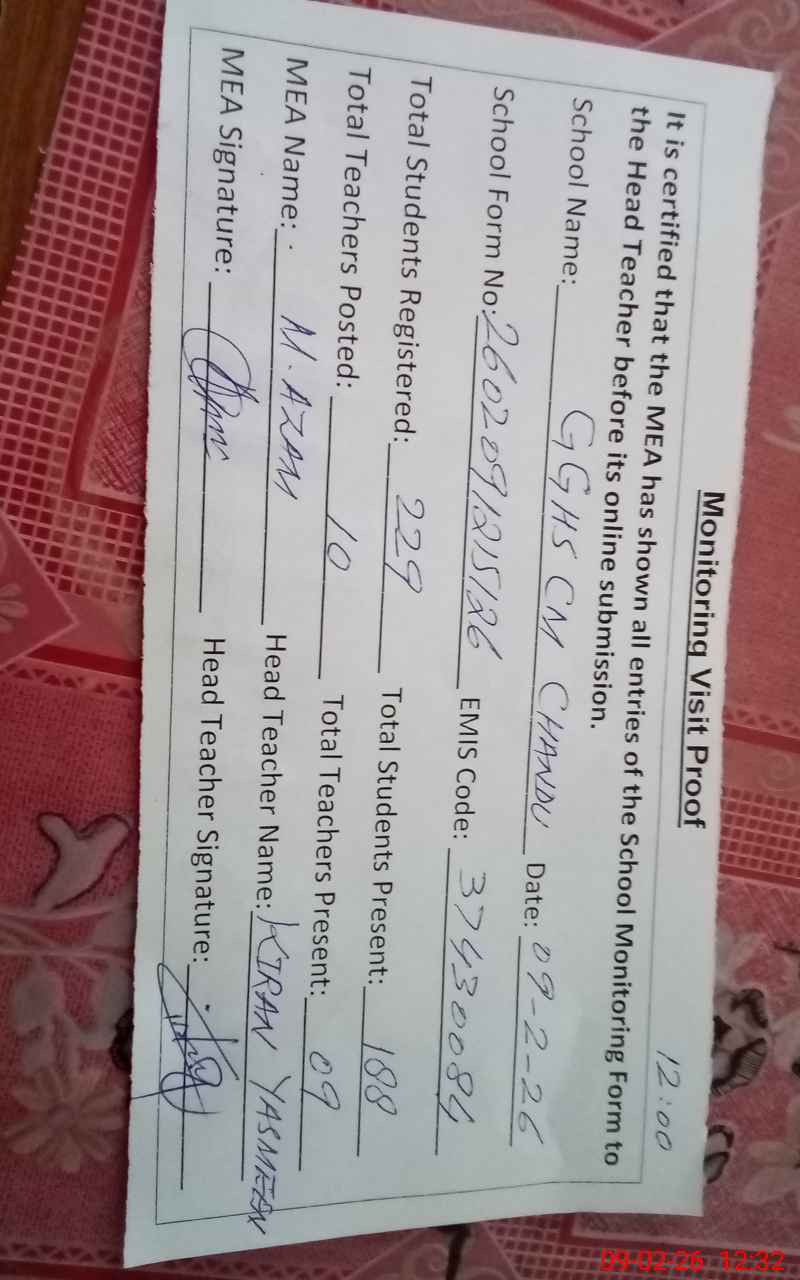 12:00
Monitoring Visit Proof
It is certified that the MEA has shown all entries of the School Monitoring Form to
the Head Teacher before its online submission.
School Name: GGHS CM CHANDU Date: 09-2-26
School Form No: 2602091215126 EMIS Code: 37430084
Total Students Registered: 229 Total Students Present: 188
Total Teachers Posted: 10 Total Teachers Present: 09
MEA Name: M. AZAM Head Teacher Name: KIRAN YASMEEN
MEA Signature: Head Teacher Signature:
09-02-26 12:32